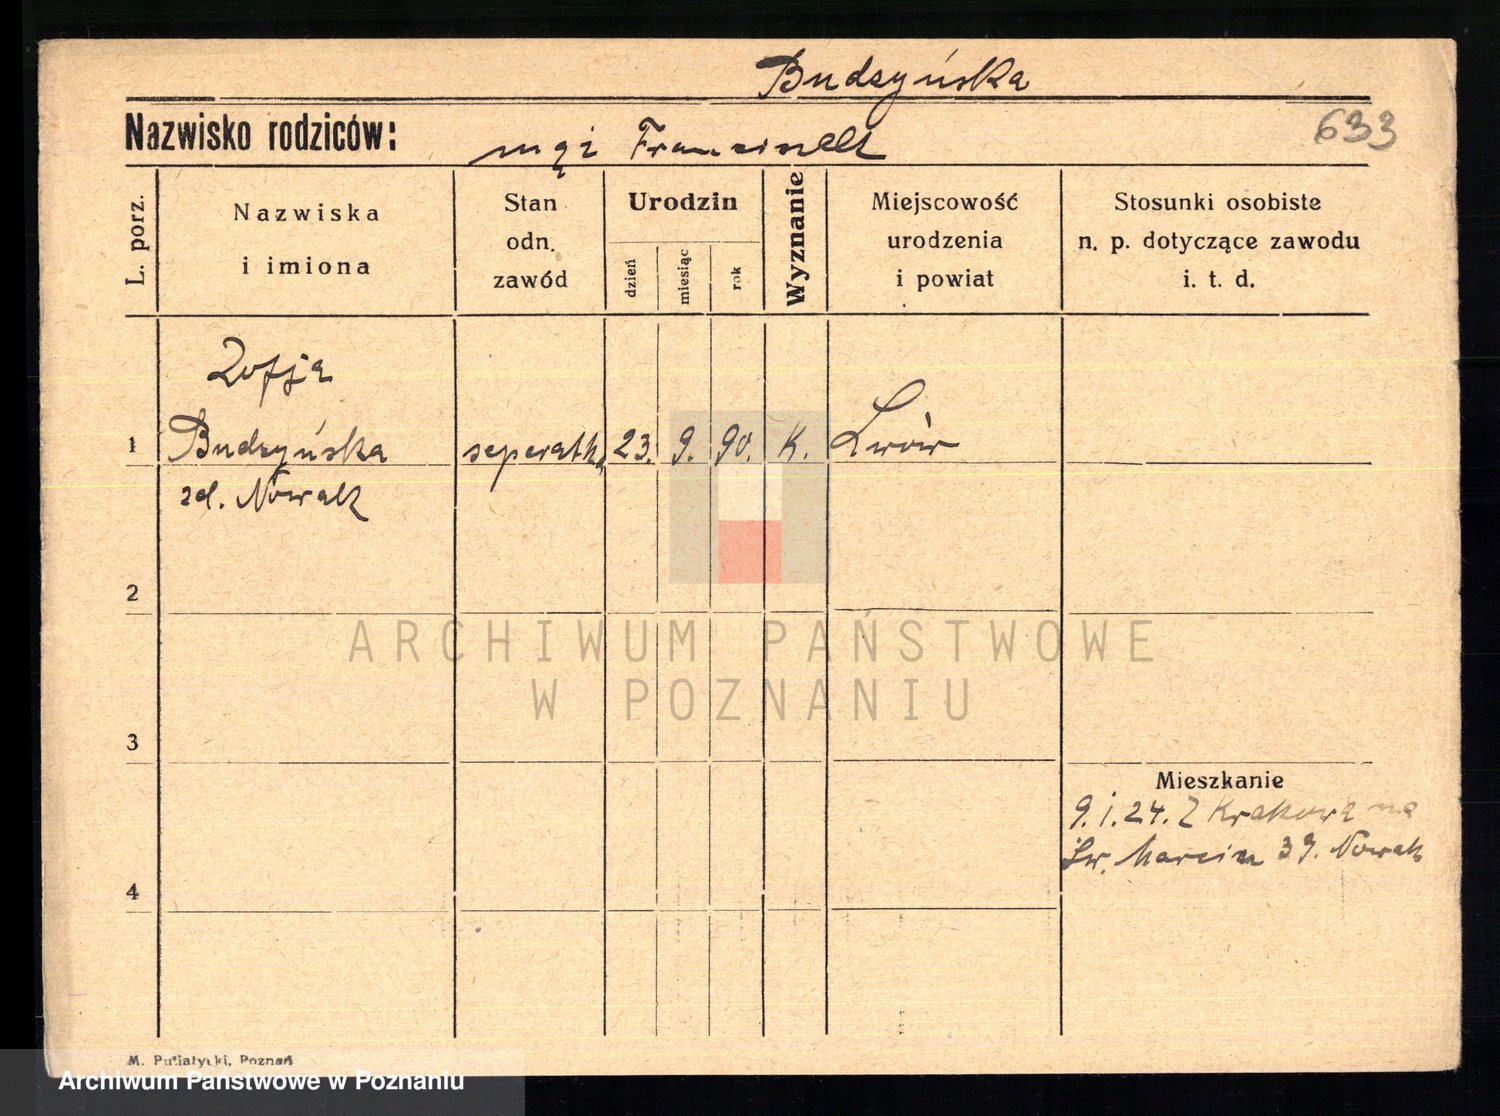 Budzyńska
Nazwisko rodziców:
mąż Franciszek
633
L. porz.
Nazwiska
i imiona
Stan
odn.
zawód
Urodzin
dzień
miesiąc
rok
Wyznanie
Miejscowość
urodzenia
i powiat
Stosunki osobiste
n. p. dotyczące zawodu
i. t. d.
Zofja
1 Budzyńska 23. 9. 90. K. Lwów
zd. Nowak
2
ARCHIWUM PAŃSTWOWE
W POZNANIU
3
Mieszkanie
9.1.24. Z Krakowa na
Św. Marcin 39. Nowak
4
M. Putiatycki, Poznań
Archiwum Państwowe w Poznaniu